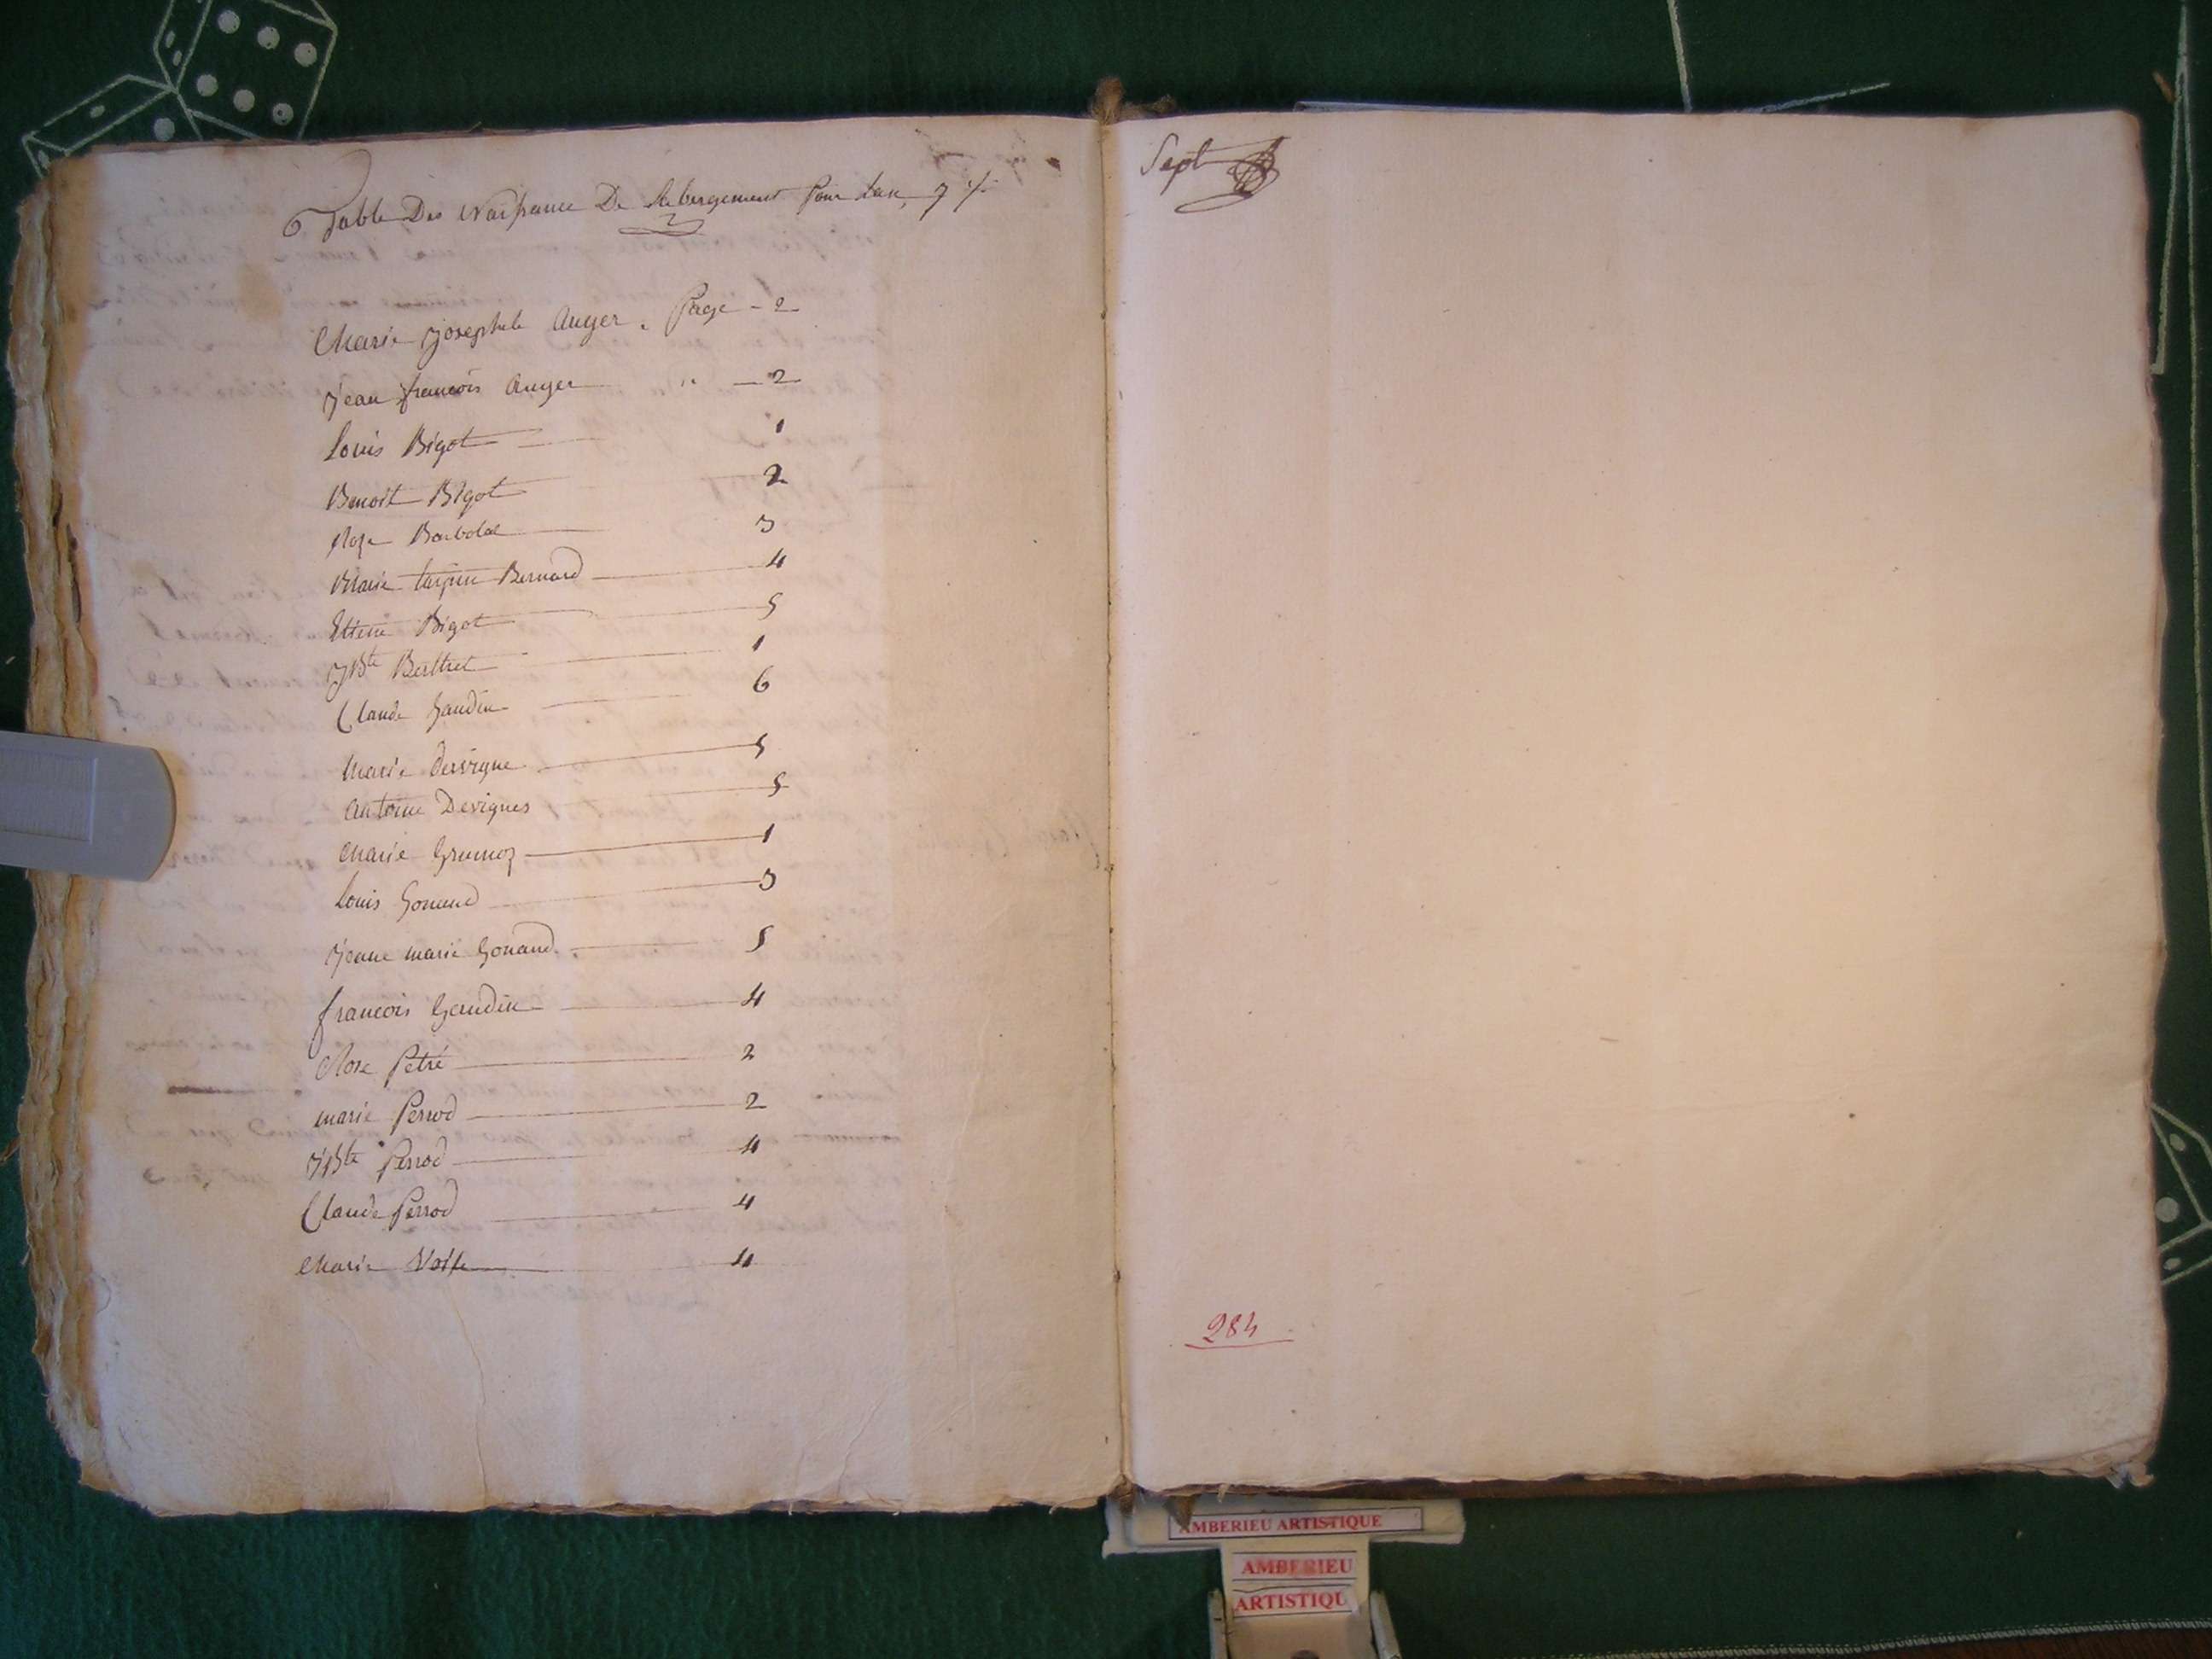 Table Des Naissance De Labergement Pour Lan 7
Marie josephete Auger . Page - 2
jean francois Auger " - 2
Louis Bigot 1
Benoit Bigot 2
Rose 3
Marie Bernard 4
Etiene Bigot 5
JBte Berthet 1
Claude Gaudin 6
Marie Dervigne 5
Antoine Devignes 5
Marie 1
Louis Gonand 3
jeane marie Gonand. 5
francois Gaudin 4
Rose Petré 2
marie Perrod 2
JBte Perrod 4
Claude Perrod 4
Marie 4
Sept
284
AMBERIEU ARTISTIQUE
AMBERIEU
ARTISTIQU